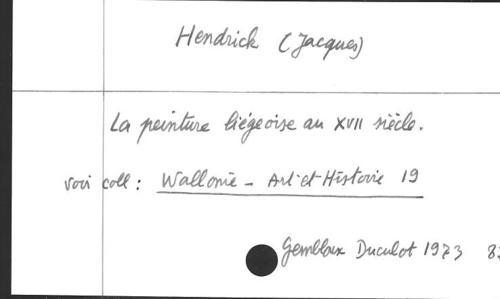 Hendrick (Jacques)
La peinture liégeoise au XVII siècle.
voir coll : Wallonie - Art et Histoire 19
Gembloux Duculot 1973 82